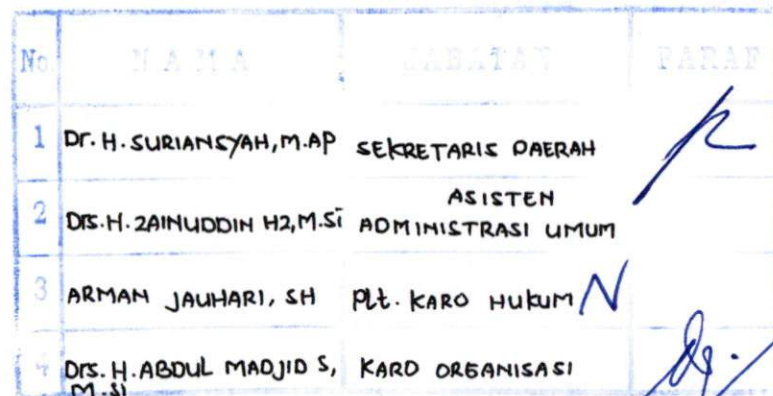 No. NAMA JABATAN PARAF
1 Dr. H. SURIANSYAH, M.AP SEKRETARIS DAERAH
ASISTEN
2 Drs. H. ZAINUDDIN HZ, M.Si ADMINISTRASI UMUM
3 ARMAN JAUHARI, SH Plt. KARO HUKUM
4 Drs. H. ABDUL MADJID S, KARO ORGANISASI
M.Si